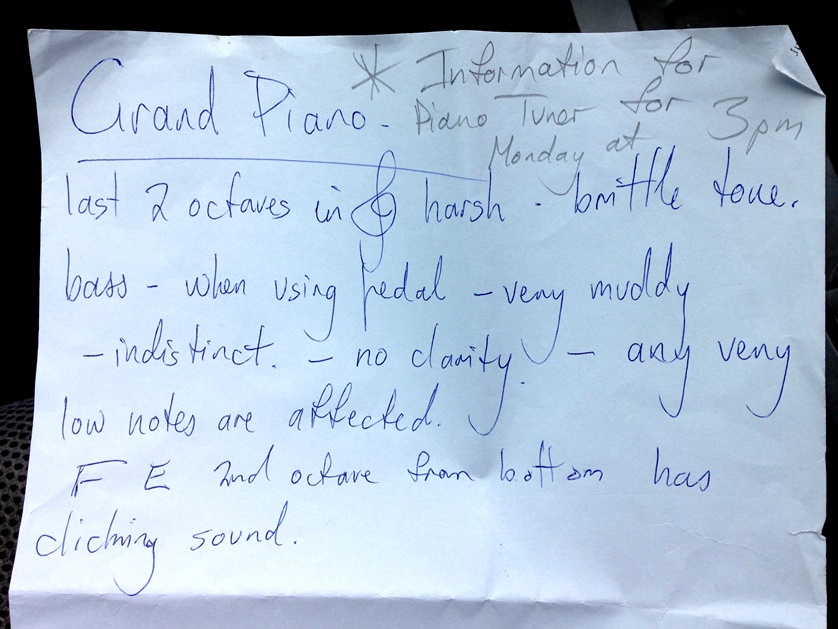 Grand Piano -
* Information for
Piano Tuner for
Monday at 3pm
last 2 octaves in 𝄞 harsh - brittle tone.
bass - when using pedal - very muddy
- indistinct. - no clarity. - any very
low notes are affected.
F E 2nd octave from bottom has
clicking sound.